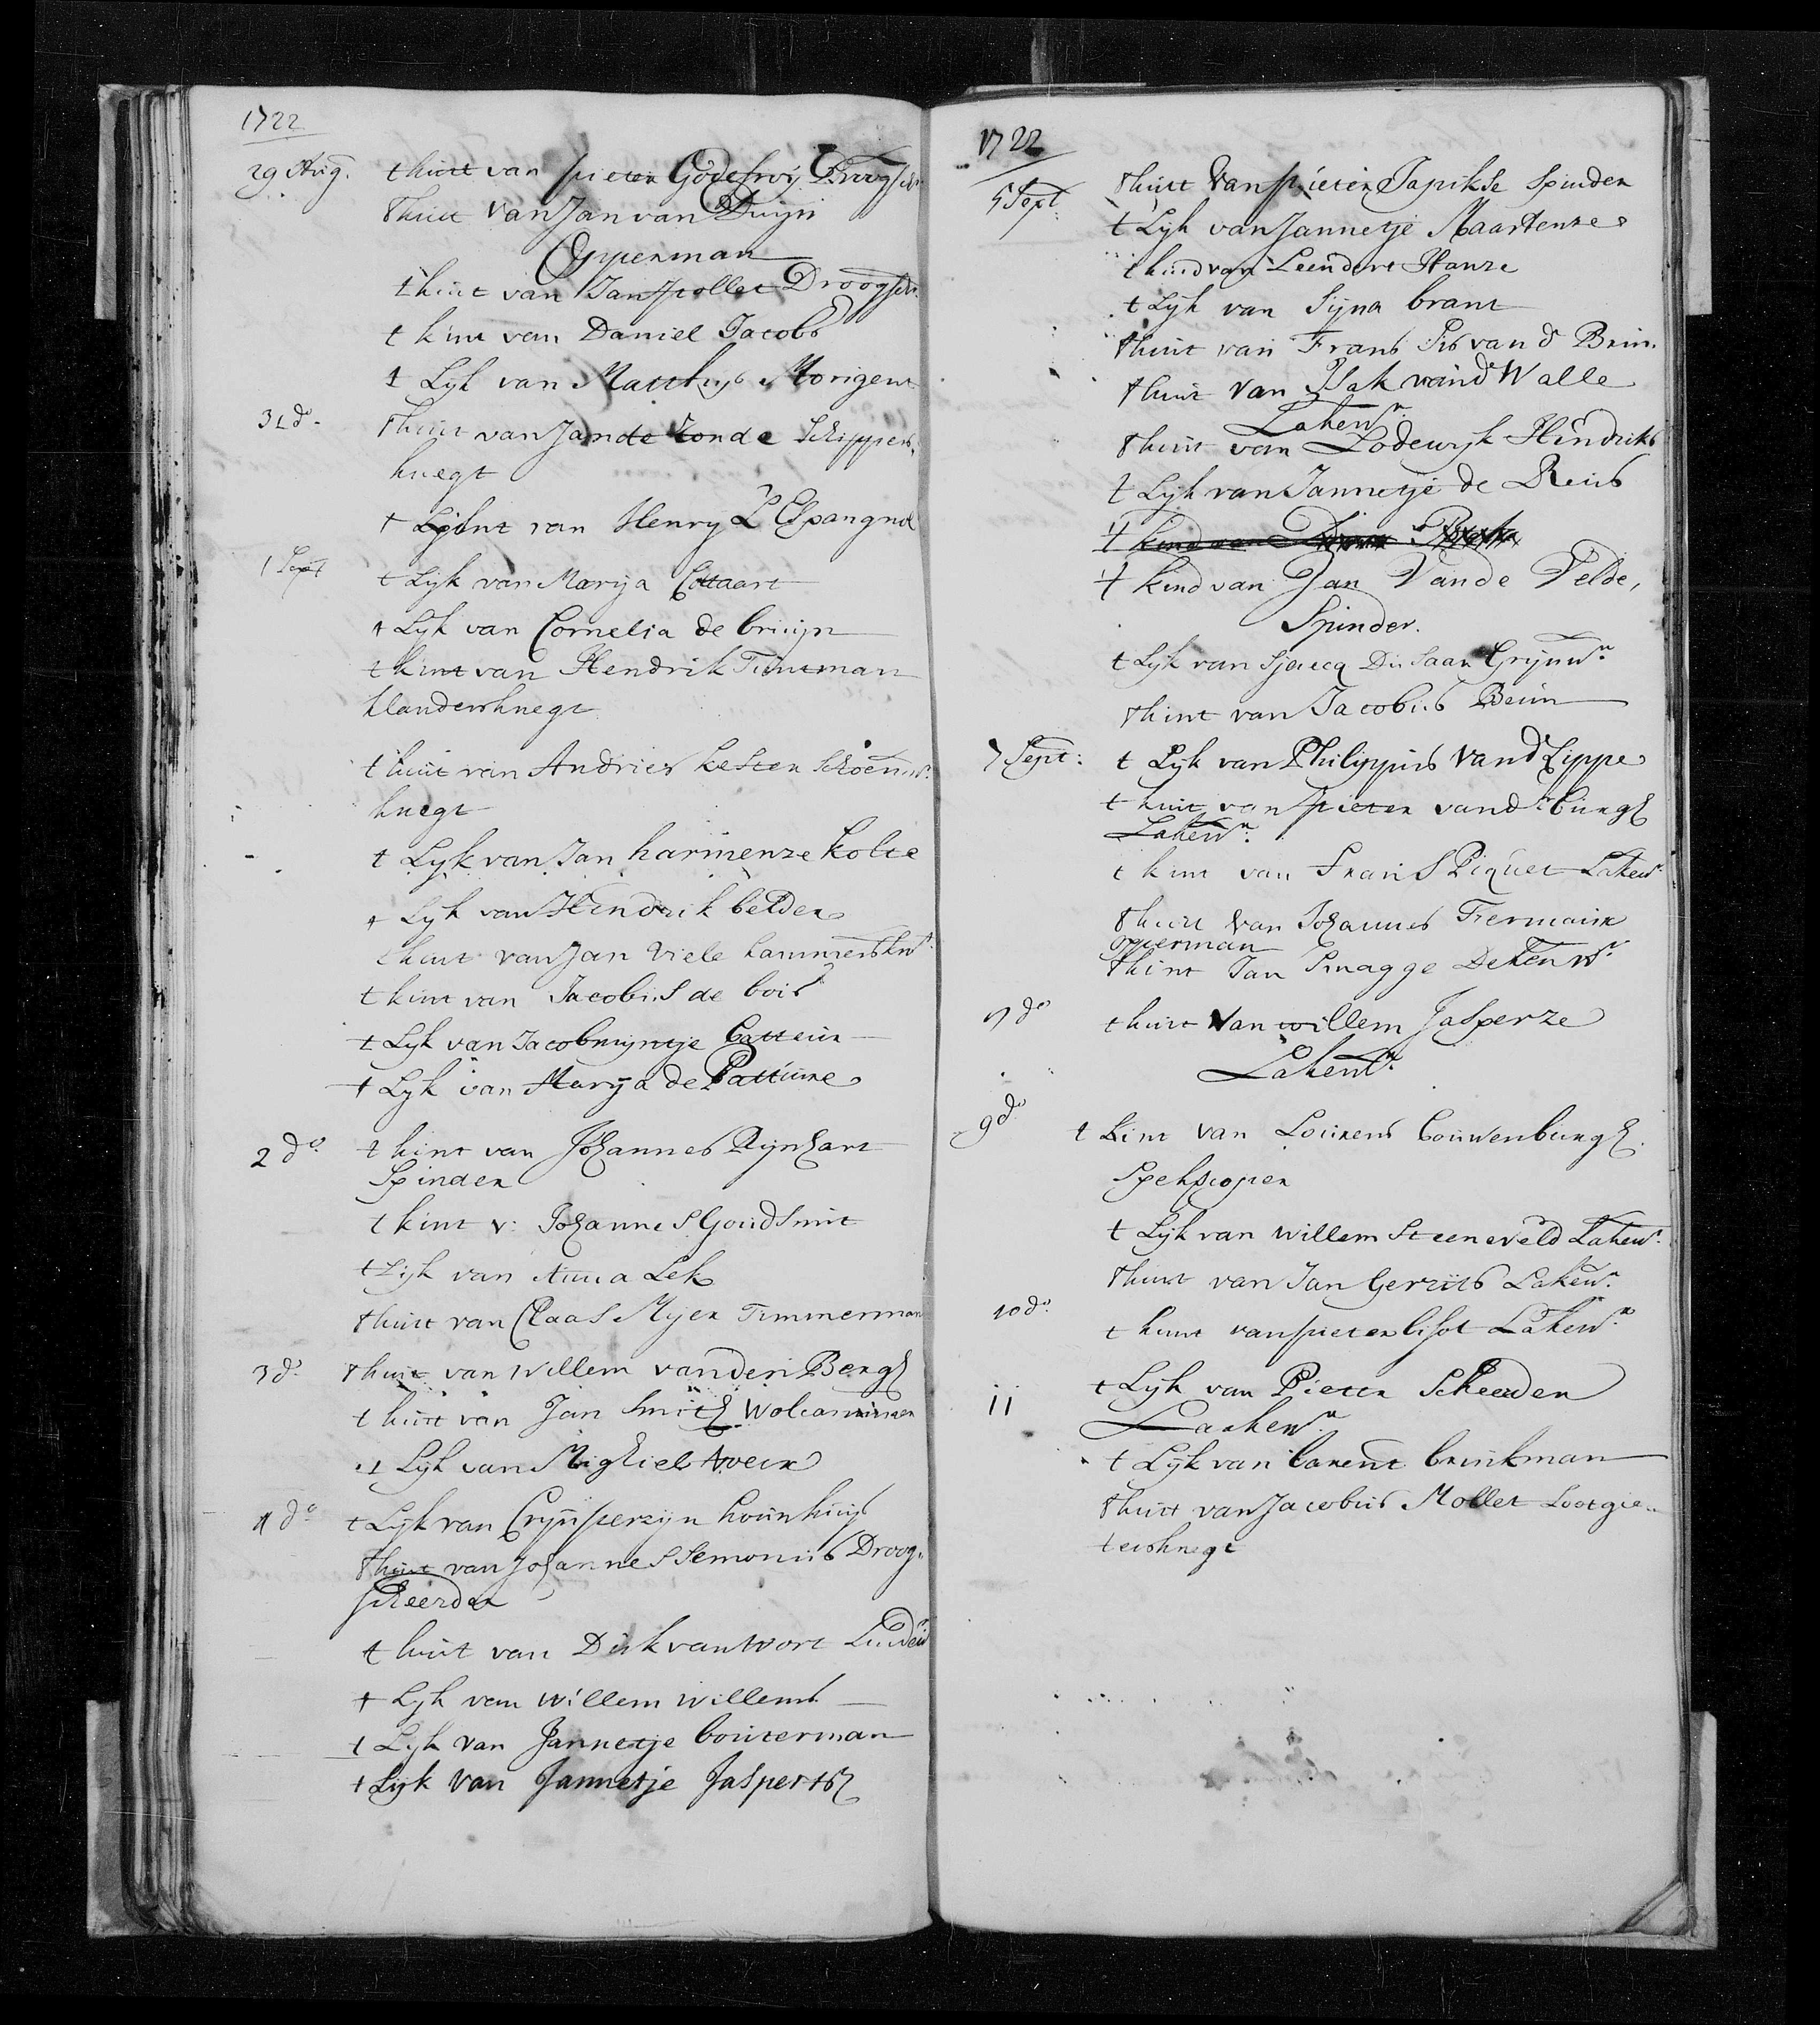 1722
29 Aug. t kint van pieter Godefroij Droogsch.
t kint van Jan van Duijn
Opperman
t kint van Jan pollet Droogsch.
t kint van Daniel Jacobs
t Lyk van Matthys Morigent
31 do. t kint van Jan de Zonde Schippers,
knegt
t kint van Henry L'Espangnol
1 Sept t Lyk van Marija Cottaart
t Lyk van Cornelia de bruijn
t kint van Hendrik Tuntman
klanders knegt
t kint van Andries Kesten Schoenm.
knegt
t Lyk van Jan harmenze Kolte
t Lyk van Hendrik belder
t kint van Jan Viele kammerskn.
t kint van Jacobus de bois
t Lyk van Jacobmijntje Catteur
t Lyk van Marija de Pattuure
2 do. t kint van Johannes Rijnhart
Spinder
t kint v: Johannes Goudsmit
t Lyk van Anna Lek
t kint van Claas Myer Timmerman
3 do. t kint van Willem vanden Bergh
t kint van Jan Smith Wolcammer
t Lyk van Mighiel Aveer
4 do. t Lyk van Crijnperzijn hounhuijs
t kint van Johannes Semonis Droog,
scheerder
t kint van Dirk van Wort
t Lyk van willem willems
t Lyk van Jannetje bouterman
t Lyk van Jannetje Jaspertsz
1722
5 Sept: t kint van pieter Japikse Spinder
t Lyk van Jannetje Maartenze
t kind van Leendert Hanze
t Lyk van Sijna brant
t kint van Frans Pis van d Brin.
t kint van Isak van d Walle
Lakenw.
t kint van Lodewyk Hendriks
t Lyk van Jannetje de Reus
t kind van
t kind van Jan Vande Velde,
Spinder.
t Lyk van Sjaecq Du Saar Grijnw.
t kint van Jacobus Beun
7 Sept: t Lyk van Philippus vand Lippe
t kint van pieter vand burgh
Lakenw:
t kint van Frans Piquet Lakenw
t kint van Johannes Fremaux
opperman
t kint Jan Pinagge Dekenw.
7 do t kint Van willem Jasperze
Lakenw.
9 do t kint van Lourens Couwenburgh.
Spekkoper
t Lyk van willem Steeneveld Lakenw.
t kint van Jan Gerrits Lakenw.
10 do. t kint van pieter lisot Lakenw.
11 t Lyk van Pieter Scheerder
Laakenw.
t Lyk van barent brinkman
t kint van Jacobus Mollet Lootgie-
ters knegt